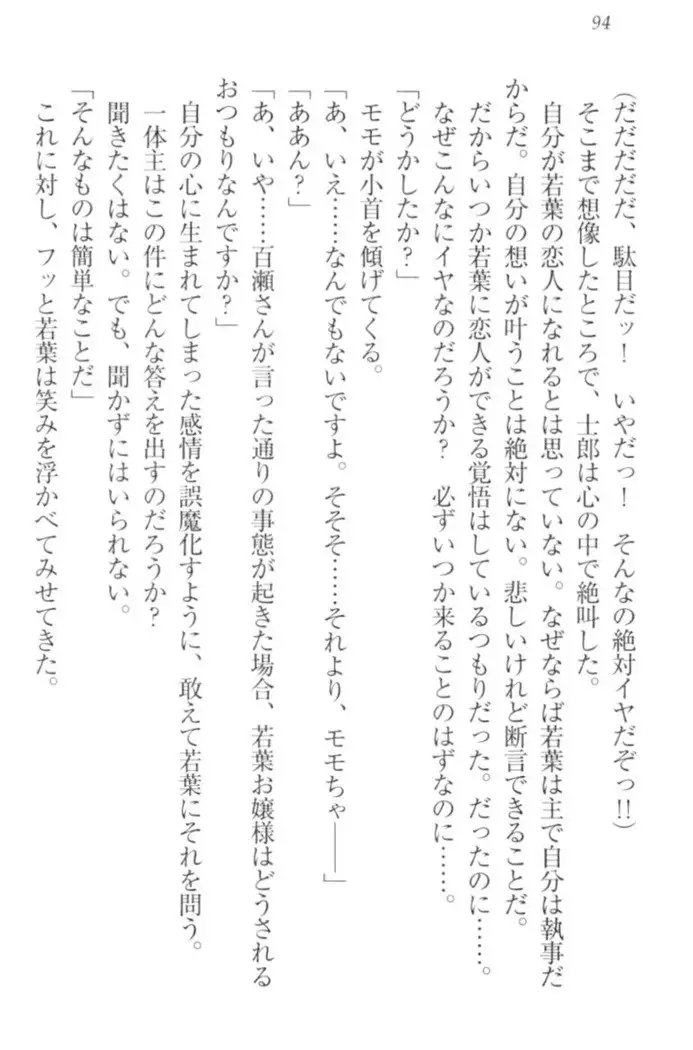 94
(だだだだだ、駄目だッ！　いやだっ！　そんなの絶対イヤだぞっ!!)
そこまで想像したところで、士郎は心の中で絶叫した。
自分が若葉の恋人になれるとは思っていない。なぜならば若葉は主で自分は執事だ
からだ。自分の想いが叶うことは絶対にない。悲しいけれど断言できることだ。
だからいつか若葉に恋人ができる覚悟はしているつもりだった。だったのに……。
なぜこんなにイヤなのだろうか？　必ずいつか来ることのはずなのに……。
「どうかしたか？」
モモが小首を傾げてくる。
「あ、いえ……なんでもないですよ。そそそ……それより、モモちゃ――」
「ああん？」
「あ、いや……百瀬さんが言った通りの事態が起きた場合、若葉お嬢様はどうされる
おつもりなんですか？」
自分の心に生まれてしまった感情を誤魔化すように、敢えて若葉にそれを問う。
一体主はこの件にどんな答えを出すのだろうか？
聞きたくはない。でも、聞かずにはいられない。
「そんなものは簡単なことだ」
これに対し、フッと若葉は笑みを浮かべてみせてきた。